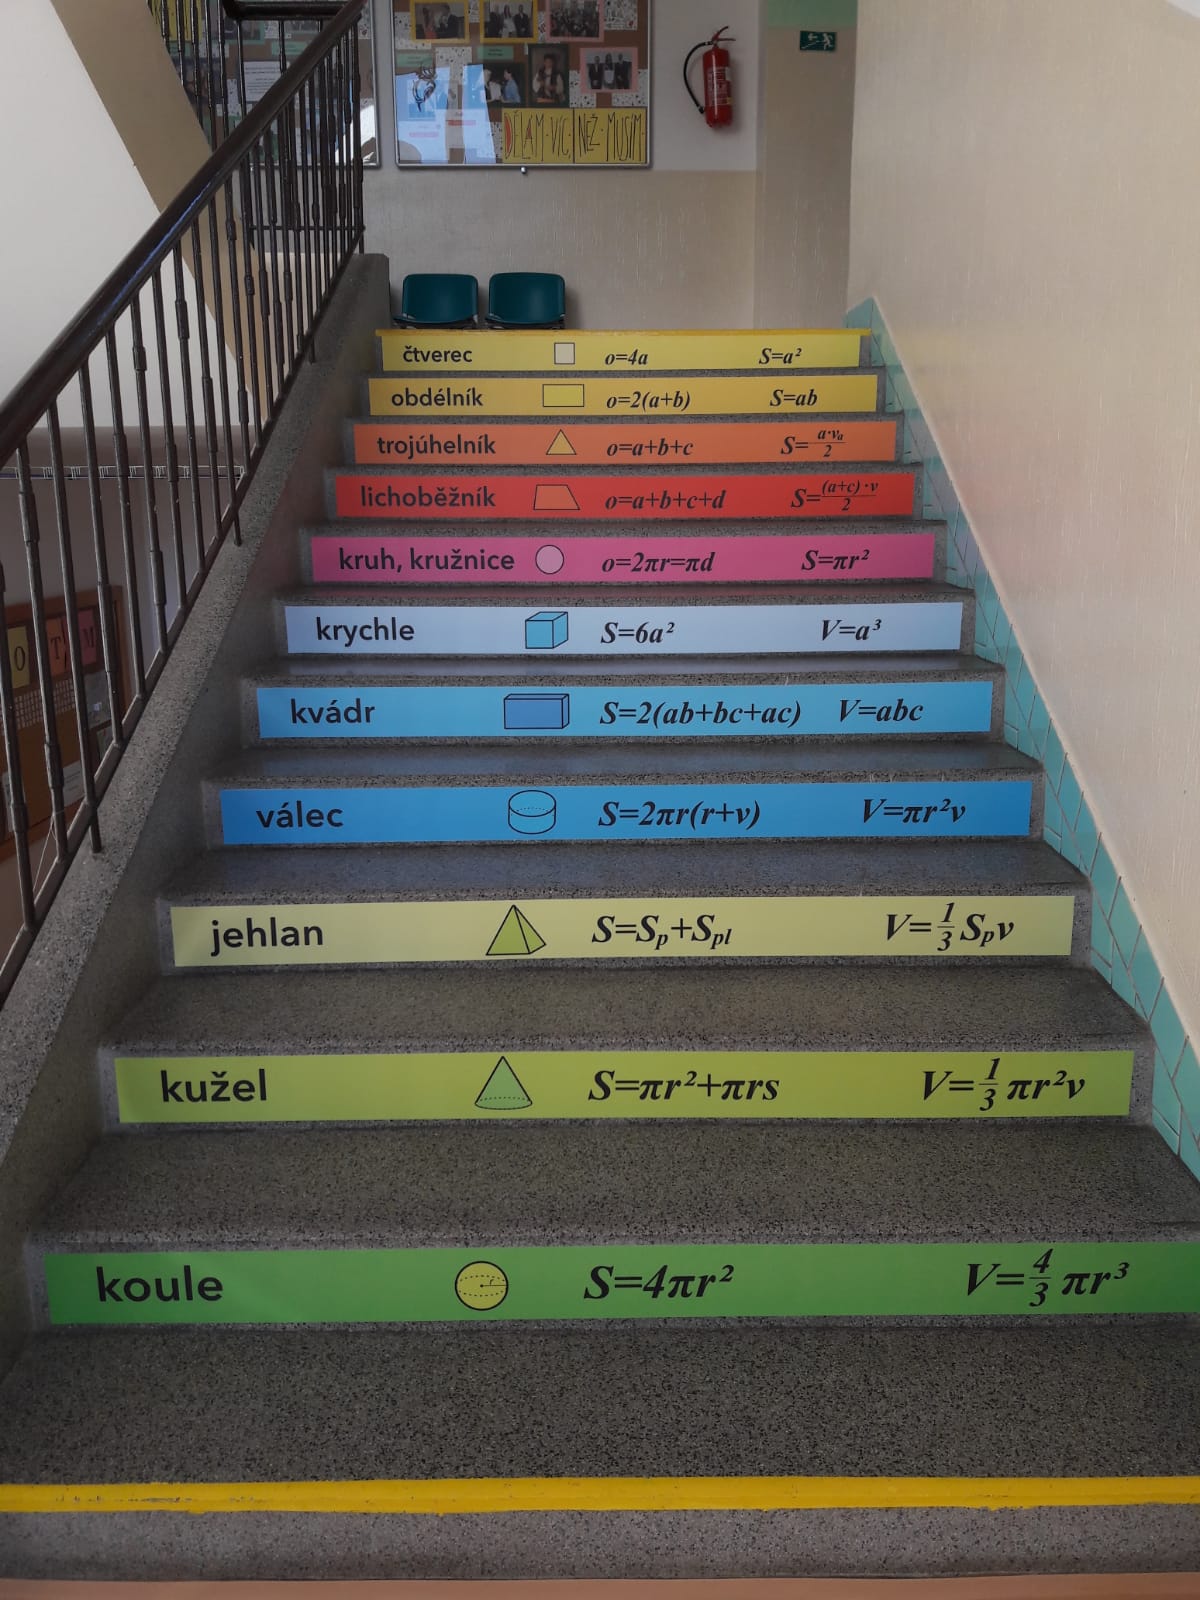 DĚLÁM VÍC, NEŽ MUSÍM
čtverec o=4a S=a²
obdélník o=2(a+b) S=ab
trojúhelník o=a+b+c S=a·vₐ/2
lichoběžník o=a+b+c+d S=(a+c)·v/2
kruh, kružnice o=2πr=πd S=πr²
krychle S=6a² V=a³
kvádr S=2(ab+bc+ac) V=abc
válec S=2πr(r+v) V=πr²v
jehlan S=Sp+Spl V=1/3 Spv
kužel S=πr²+πrs V=1/3 πr²v
koule r S=4πr² V=4/3 πr³